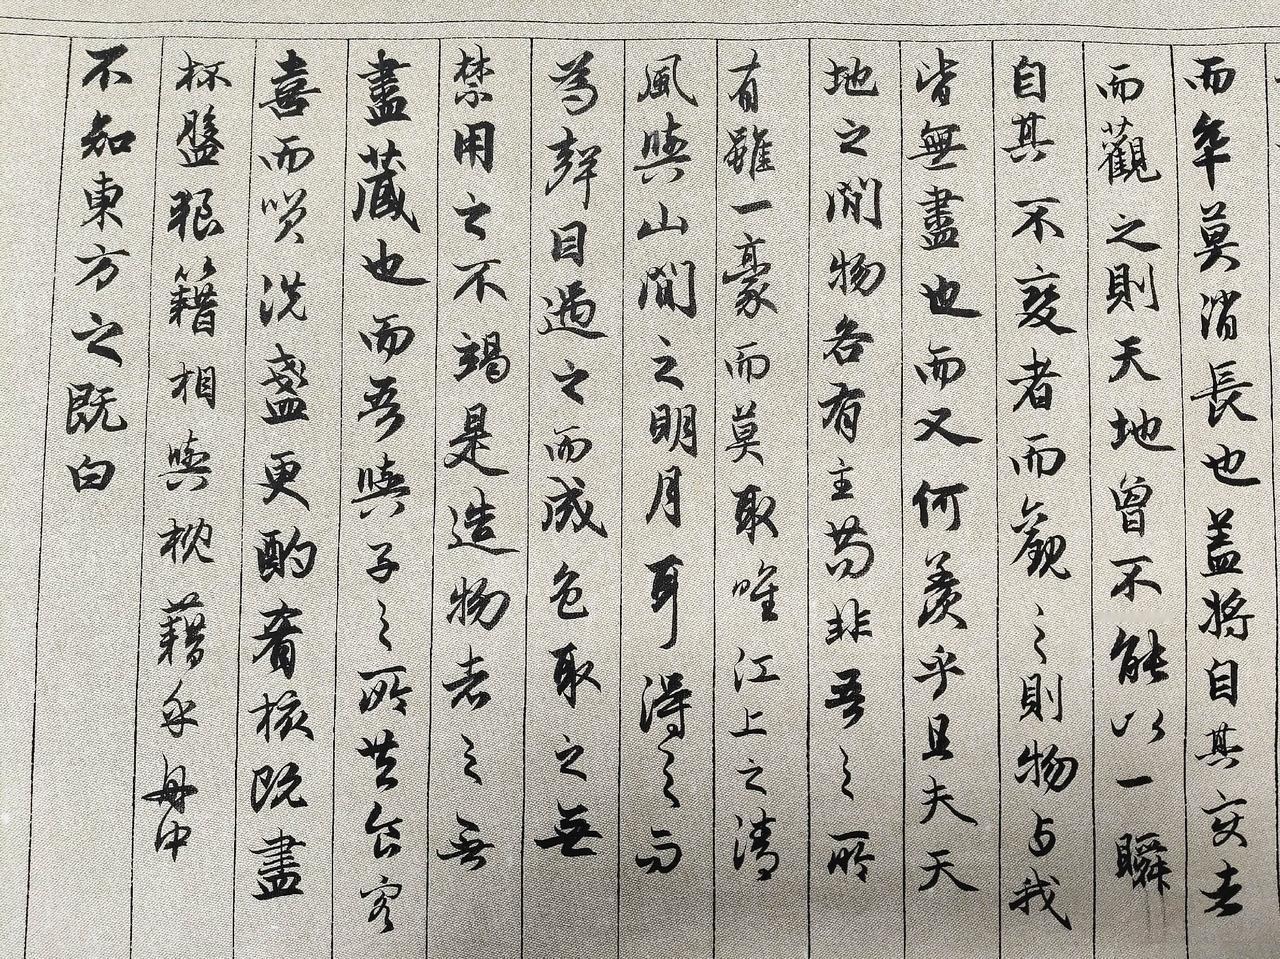 而卒莫消長也盖將自其变者
而觀之則天地曾不能以一瞬
自其不變者而觀之則物与我
皆無盡也而又何羨乎且夫天
地之間物各有主苟非吾之所
有雖一豪而莫取唯江上之清
風與山間之明月耳得之而
為聲目遇之而成色取之無
禁用之不竭是造物者之無
盡藏也而吾與子之所共食客
喜而笑洗盞更酌肴核既盡
杯盤狼籍相與枕藉乎舟中
不知東方之既白